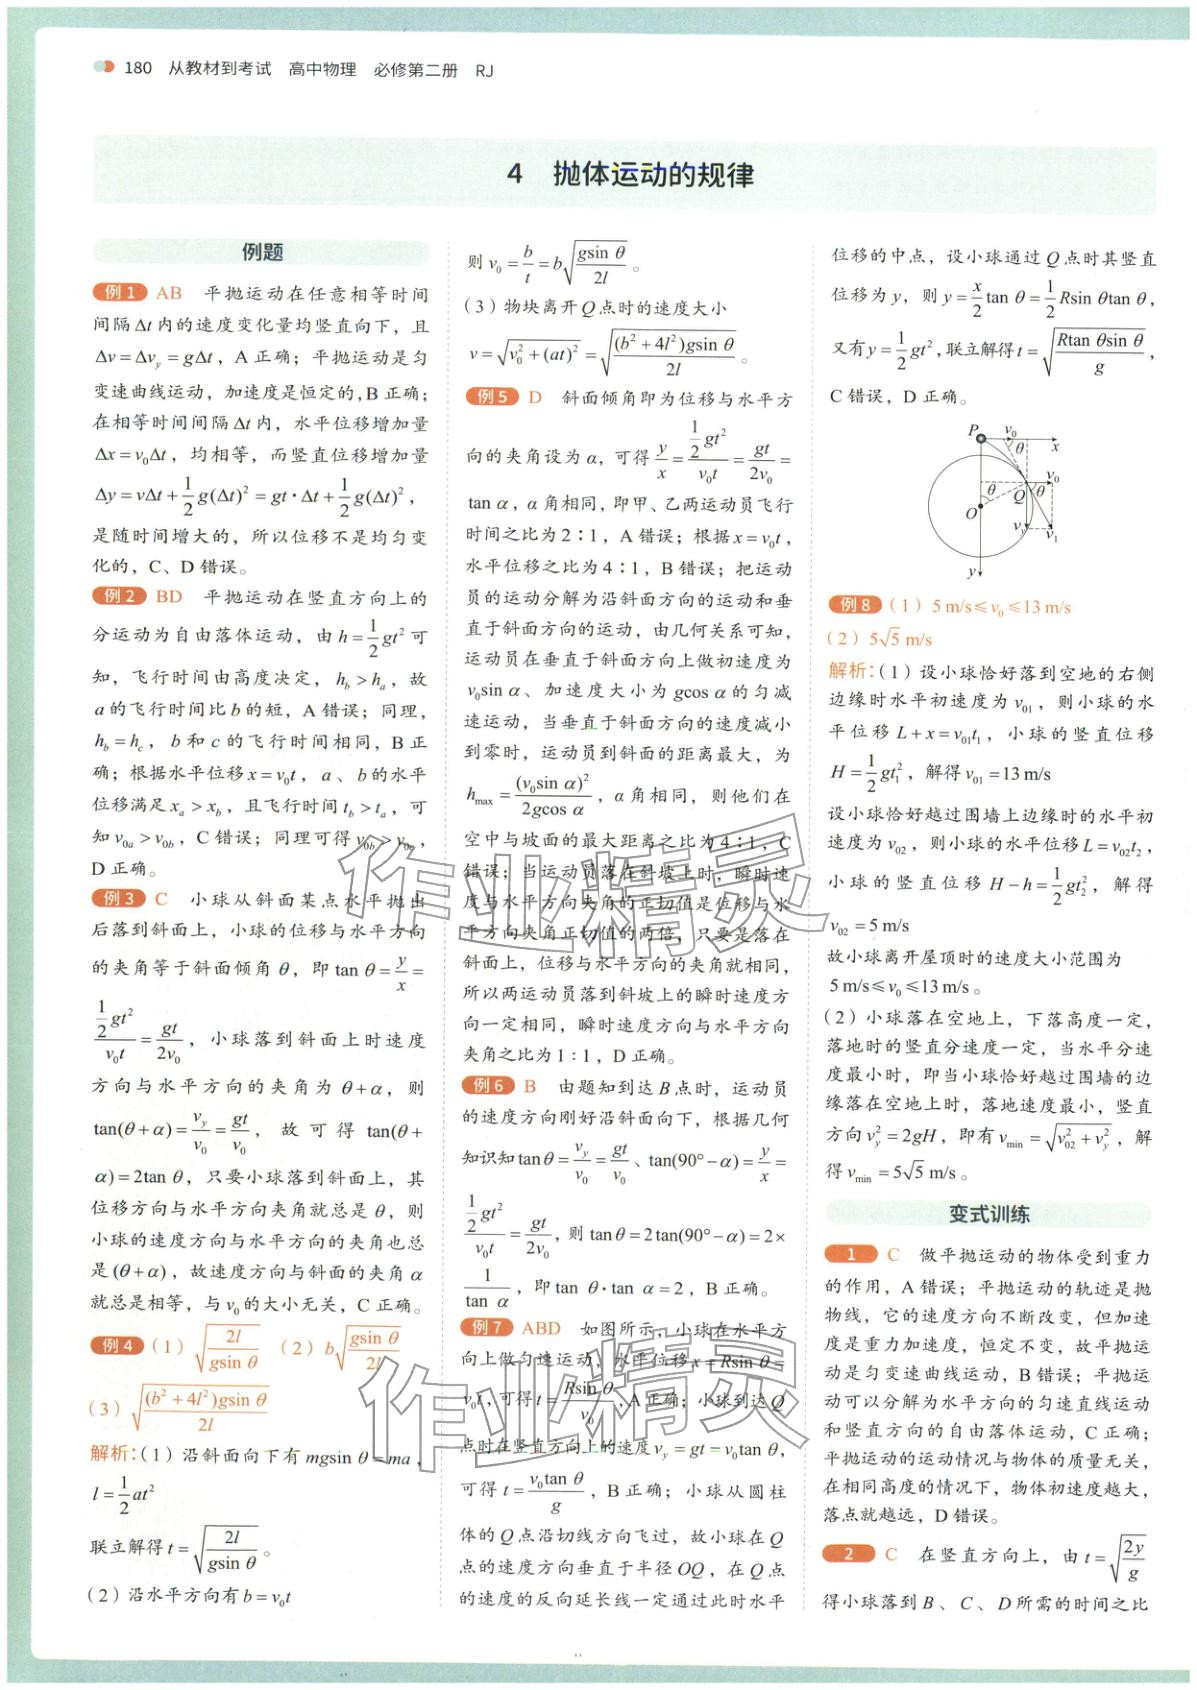 180 从教材到考试 高中物理 必修第二册 RJ
4 抛体运动的规律
例题
例1 AB 平抛运动在任意相等时间
间隔Δt内的速度变化量均竖直向下，且
Δv=Δv_y=gΔt，A正确；平抛运动是匀
变速曲线运动，加速度是恒定的，B正确；
在相等时间间隔Δt内，水平位移增加量
Δx=v₀Δt，均相等，而竖直位移增加量
Δy=vΔt+1/2 g(Δt)²=gt·Δt+1/2 g(Δt)²，
是随时间增大的，所以位移不是均匀变
化的，C、D错误。
例2 BD 平抛运动在竖直方向上的
分运动为自由落体运动，由h=1/2 gt²可
知，飞行时间由高度决定，h_b>h_a，故
a的飞行时间比b的短，A错误；同理，
h_b=h_c，b和c的飞行时间相同，B正
确；根据水平位移x=v₀t，a、b的水平
位移满足x_a>x_b，且飞行时间t_b>t_a，可
知v_0a>v_0b，C错误；同理可得v_0b>v_0c，
D正确。
例3 C 小球从斜面某点水平抛出
后落到斜面上，小球的位移与水平方向
的夹角等于斜面倾角θ，即tan θ=y/x=
(1/2 gt²)/(v₀t)=gt/(2v₀)，小球落到斜面上时速度
方向与水平方向的夹角为θ+α，则
tan(θ+α)=v_y/v₀=gt/v₀，故可得tan(θ+
α)=2tan θ，只要小球落到斜面上，其
位移方向与水平方向夹角就总是θ，则
小球的速度方向与水平方向的夹角也总
是(θ+α)，故速度方向与斜面的夹角α
就总是相等，与v₀的大小无关，C正确。
例4 (1) √(2l/(gsin θ)) (2) b√(gsin θ/(2l))
(3) √((b²+4l²)gsin θ/(2l))
解析：(1)沿斜面向下有mgsin θ=ma，
l=1/2 at²
联立解得t=√(2l/(gsin θ))。
(2)沿水平方向有b=v₀t
则v₀=b/t=b√(gsin θ/(2l))。
(3)物块离开Q点时的速度大小
v=√(v₀²+(at)²)=√((b²+4l²)gsin θ/(2l))。
例5 D 斜面倾角即为位移与水平方
向的夹角设为α，可得y/x=(1/2 gt²)/(v₀t)=gt/(2v₀)=
tan α，α角相同，即甲、乙两运动员飞行
时间之比为2∶1，A错误；根据x=v₀t，
水平位移之比为4∶1，B错误；把运动
员的运动分解为沿斜面方向的运动和垂
直于斜面方向的运动，由几何关系可知，
运动员在垂直于斜面方向上做初速度为
v₀sin α、加速度大小为gcos α的匀减
速运动，当垂直于斜面方向的速度减小
到零时，运动员到斜面的距离最大，为
h_max=(v₀sin α)²/(2gcos α)，α角相同，则他们在
空中与坡面的最大距离之比为4∶1，C
错误；当运动员落在斜坡上时，瞬时速
度与水平方向夹角的正切值是位移与水
平方向夹角正切值的两倍，只要是落在
斜面上，位移与水平方向的夹角就相同，
所以两运动员落到斜坡上的瞬时速度方
向一定相同，瞬时速度方向与水平方向
夹角之比为1∶1，D正确。
例6 B 由题知到达B点时，运动员
的速度方向刚好沿斜面向下，根据几何
知识知tan θ=v_y/v₀=gt/v₀、tan(90°-α)=y/x=
(1/2 gt²)/(v₀t)=gt/(2v₀)，则tan θ=2tan(90°-α)=2×
1/tan α，即tan θ·tan α=2，B正确。
例7 ABD 如图所示，小球在水平方
向上做匀速运动，水平位移x=Rsin θ=
v₀t，可得t=Rsin θ/v₀，A正确；小球到达Q
点时在竖直方向上的速度v_y=gt=v₀tan θ，
可得t=v₀tan θ/g，B正确；小球从圆柱
体的Q点沿切线方向飞过，故小球在Q
点的速度方向垂直于半径OQ，在Q点
的速度的反向延长线一定通过此时水平
位移的中点，设小球通过Q点时其竖直
位移为y，则y=x/2 tan θ=1/2 Rsin θtan θ，
又有y=1/2 gt²，联立解得t=√(Rtan θsin θ/g)，
C错误，D正确。
P v₀ x
θ
θ Q θ v₀
O
v_y v₁
y
例8 (1) 5 m/s≤v₀≤13 m/s
(2) 5√5 m/s
解析：(1)设小球恰好落到空地的右侧
边缘时水平初速度为v₀₁，则小球的水
平位移L+x=v₀₁t₁，小球的竖直位移
H=1/2 gt₁²，解得v₀₁=13 m/s
设小球恰好越过围墙上边缘时的水平初
速度为v₀₂，则小球的水平位移L=v₀₂t₂，
小球的竖直位移H-h=1/2 gt₂²，解得
v₀₂=5 m/s
故小球离开屋顶时的速度大小范围为
5 m/s≤v₀≤13 m/s。
(2)小球落在空地上，下落高度一定，
落地时的竖直分速度一定，当水平分速
度最小时，即当小球恰好越过围墙的边
缘落在空地上时，落地速度最小，竖直
方向v_y²=2gH，即有v_min=√(v₀₂²+v_y²)，解
得v_min=5√5 m/s。
变式训练
1 C 做平抛运动的物体受到重力
的作用，A错误；平抛运动的轨迹是抛
物线，它的速度方向不断改变，但加速
度是重力加速度，恒定不变，故平抛运
动是匀变速曲线运动，B错误；平抛运
动可以分解为水平方向的匀速直线运动
和竖直方向的自由落体运动，C正确；
平抛运动的运动情况与物体的质量无关，
在相同高度的情况下，物体初速度越大，
落点就越远，D错误。
2 C 在竖直方向上，由t=√(2y/g)
得小球落到B、C、D所需的时间之比
作业精灵
作业精灵